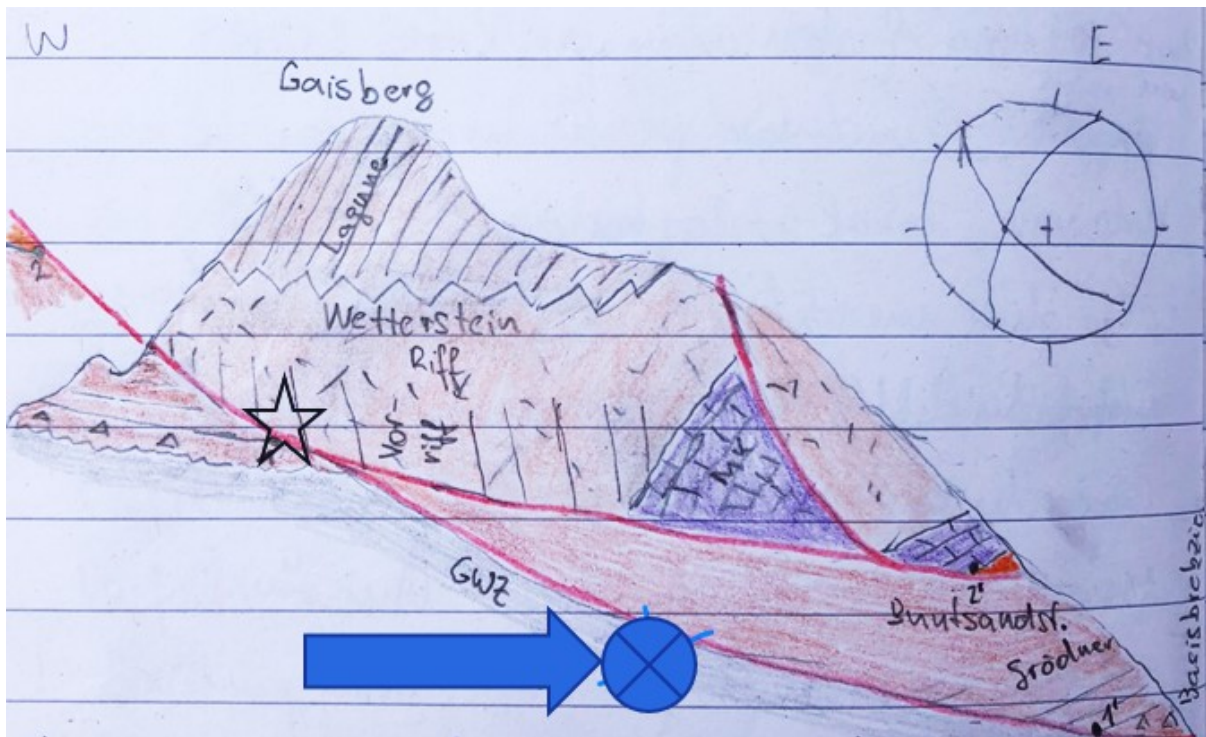 W
E
Gaisberg
Lagune
Wetterstein
Riff
Vor-
riff
MK
2
GWZ
2'
Buntsandst.
Grödner
1'
Basisbrekzie